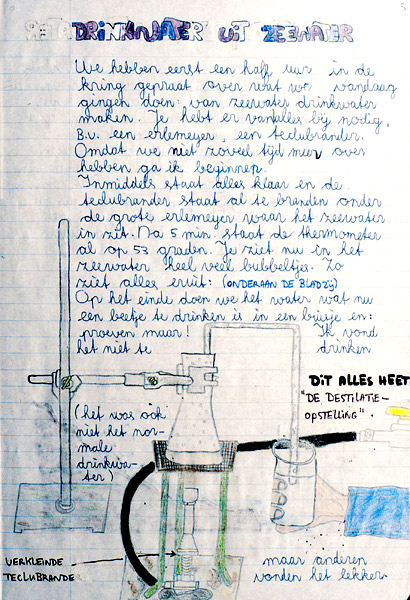 DRINKWATER UIT ZEEWATER
We hebben eerst een half uur in de
kring gepraat over wat we vandaag
gingen doen: van zeewater drinkwater
maken. Je hebt er vanalles bij nodig,
B.v. een erlemeyer, een teclubrander.
Omdat we niet zoveel tijd meer over
hebben ga ik beginnen.
Inmiddels staat alles klaar en de
teclubrander staat al te branden onder
de grote erlemeyer waar het zeewater
in zit. Na 5 min staat de thermometer
al op 53 graden. Je ziet nu in het
zeewater heel veel bubbeltjes. Zo
ziet alles eruit: (ONDERAAN DE BLADZIJ)
Op het einde doen we het water wat nu
een beetje te drinken is in een buisje en:
proeven maar! Ik vond
het niet te drinken
(het was ook
niet het nor-
male
drinkwa-
ter)
DIT ALLES HEET
"DE DESTILATIE-
OPSTELLING".
VERKLEINDE
TECLUBRANDE
maar anderen
vonden het lekker.
5